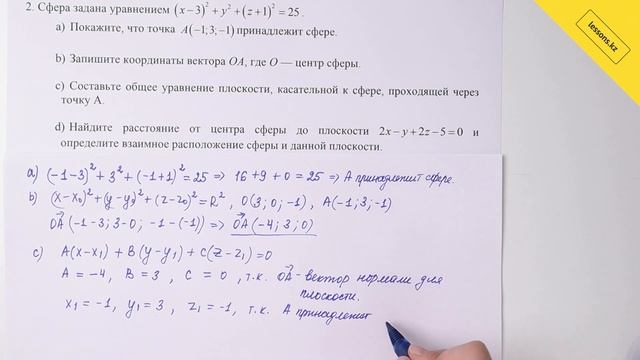 lessons.kz
2. Сфера задана уравнением (x−3)² + y² + (z+1)² = 25.
a) Покажите, что точка A(−1;3;−1) принадлежит сфере.
b) Запишите координаты вектора OA, где O — центр сферы.
c) Составьте общее уравнение плоскости, касательной к сфере, проходящей через
точку А.
d) Найдите расстояние от центра сферы до плоскости 2x−y+2z−5=0 и
определите взаимное расположение сферы и данной плоскости.
a) (−1−3)² + 3² + (−1+1)² = 25 => 16+9+0=25 => A принадлежит сфере.
b) (x−x₀)² + (y−y₀)² + (z−z₀)² = R², O(3; 0; −1), A(−1; 3; −1)
OA→ (−1−3; 3−0; −1−(−1)) => OA→ (−4; 3; 0)
c) A(x−x₁) + B(y−y₁) + C(z−z₁)=0
A = −4, B = 3, C = 0, т.к. OA→ - вектор нормали для
плоскости.
x₁ = −1, y₁ = 3, z₁ = −1, т.к. A принадлежит